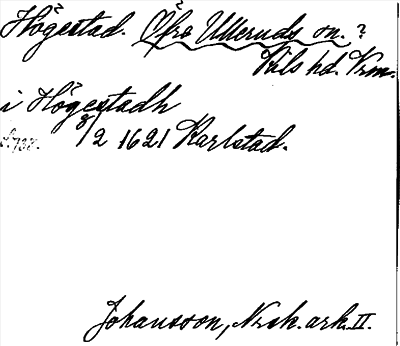 Högestad. Öfre Ulleruds sn. ?
Kils hd. Vrm.
i Högestadh
8/2 1621 Karlstad.
Johansson, Norsk. ark. II.